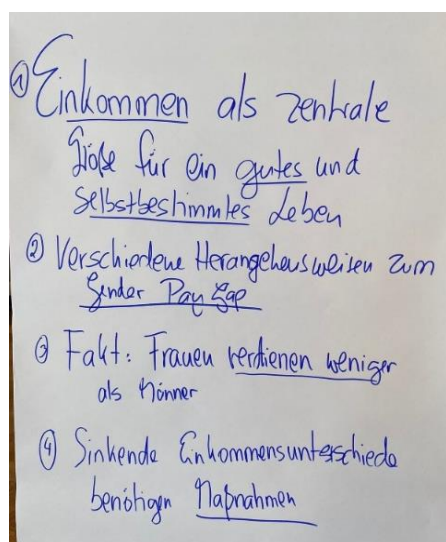 ① Einkommen als zentrale
Größe für ein gutes und
selbstbestimmtes Leben
② Verschiedene Herangehensweisen zum
Gender Pay Gap
③ Fakt: Frauen verdienen weniger
als Männer
④ Sinkende Einkommensunterschiede
benötigen Maßnahmen